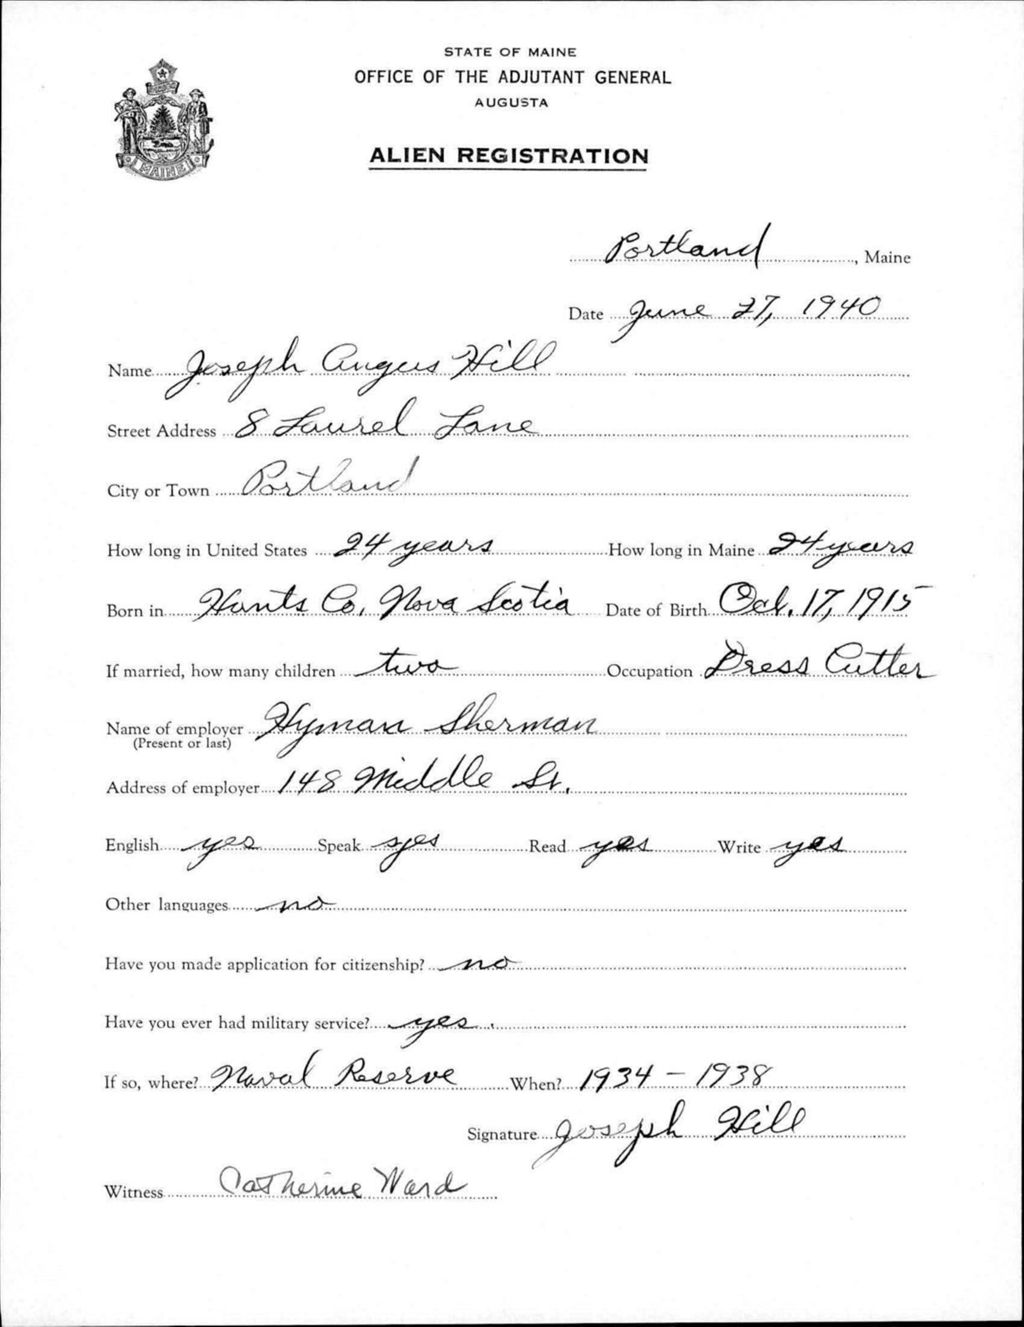 STATE OF MAINE
OFFICE OF THE ADJUTANT GENERAL
AUGUSTA
ALIEN REGISTRATION
MAINE
Portland, Maine
Date June 27, 1940
Name Joseph Angus Hill
Street Address 8 Laurel Lane
City or Town Portland
How long in United States 24 years How long in Maine 24 years
Born in Hants Co, Nova Scotia Date of Birth Oct. 17, 1915
If married, how many children two Occupation Dress Cutter
Name of employer Hyman Sherman
(Present or last)
Address of employer 148 Middle St.
English yes Speak yes Read yes Write yes
Other languages no
Have you made application for citizenship? no
Have you ever had military service? yes.
If so, where? Naval Reserve When? 1934 - 1938
Signature Joseph Hill
Witness Catherine Ward